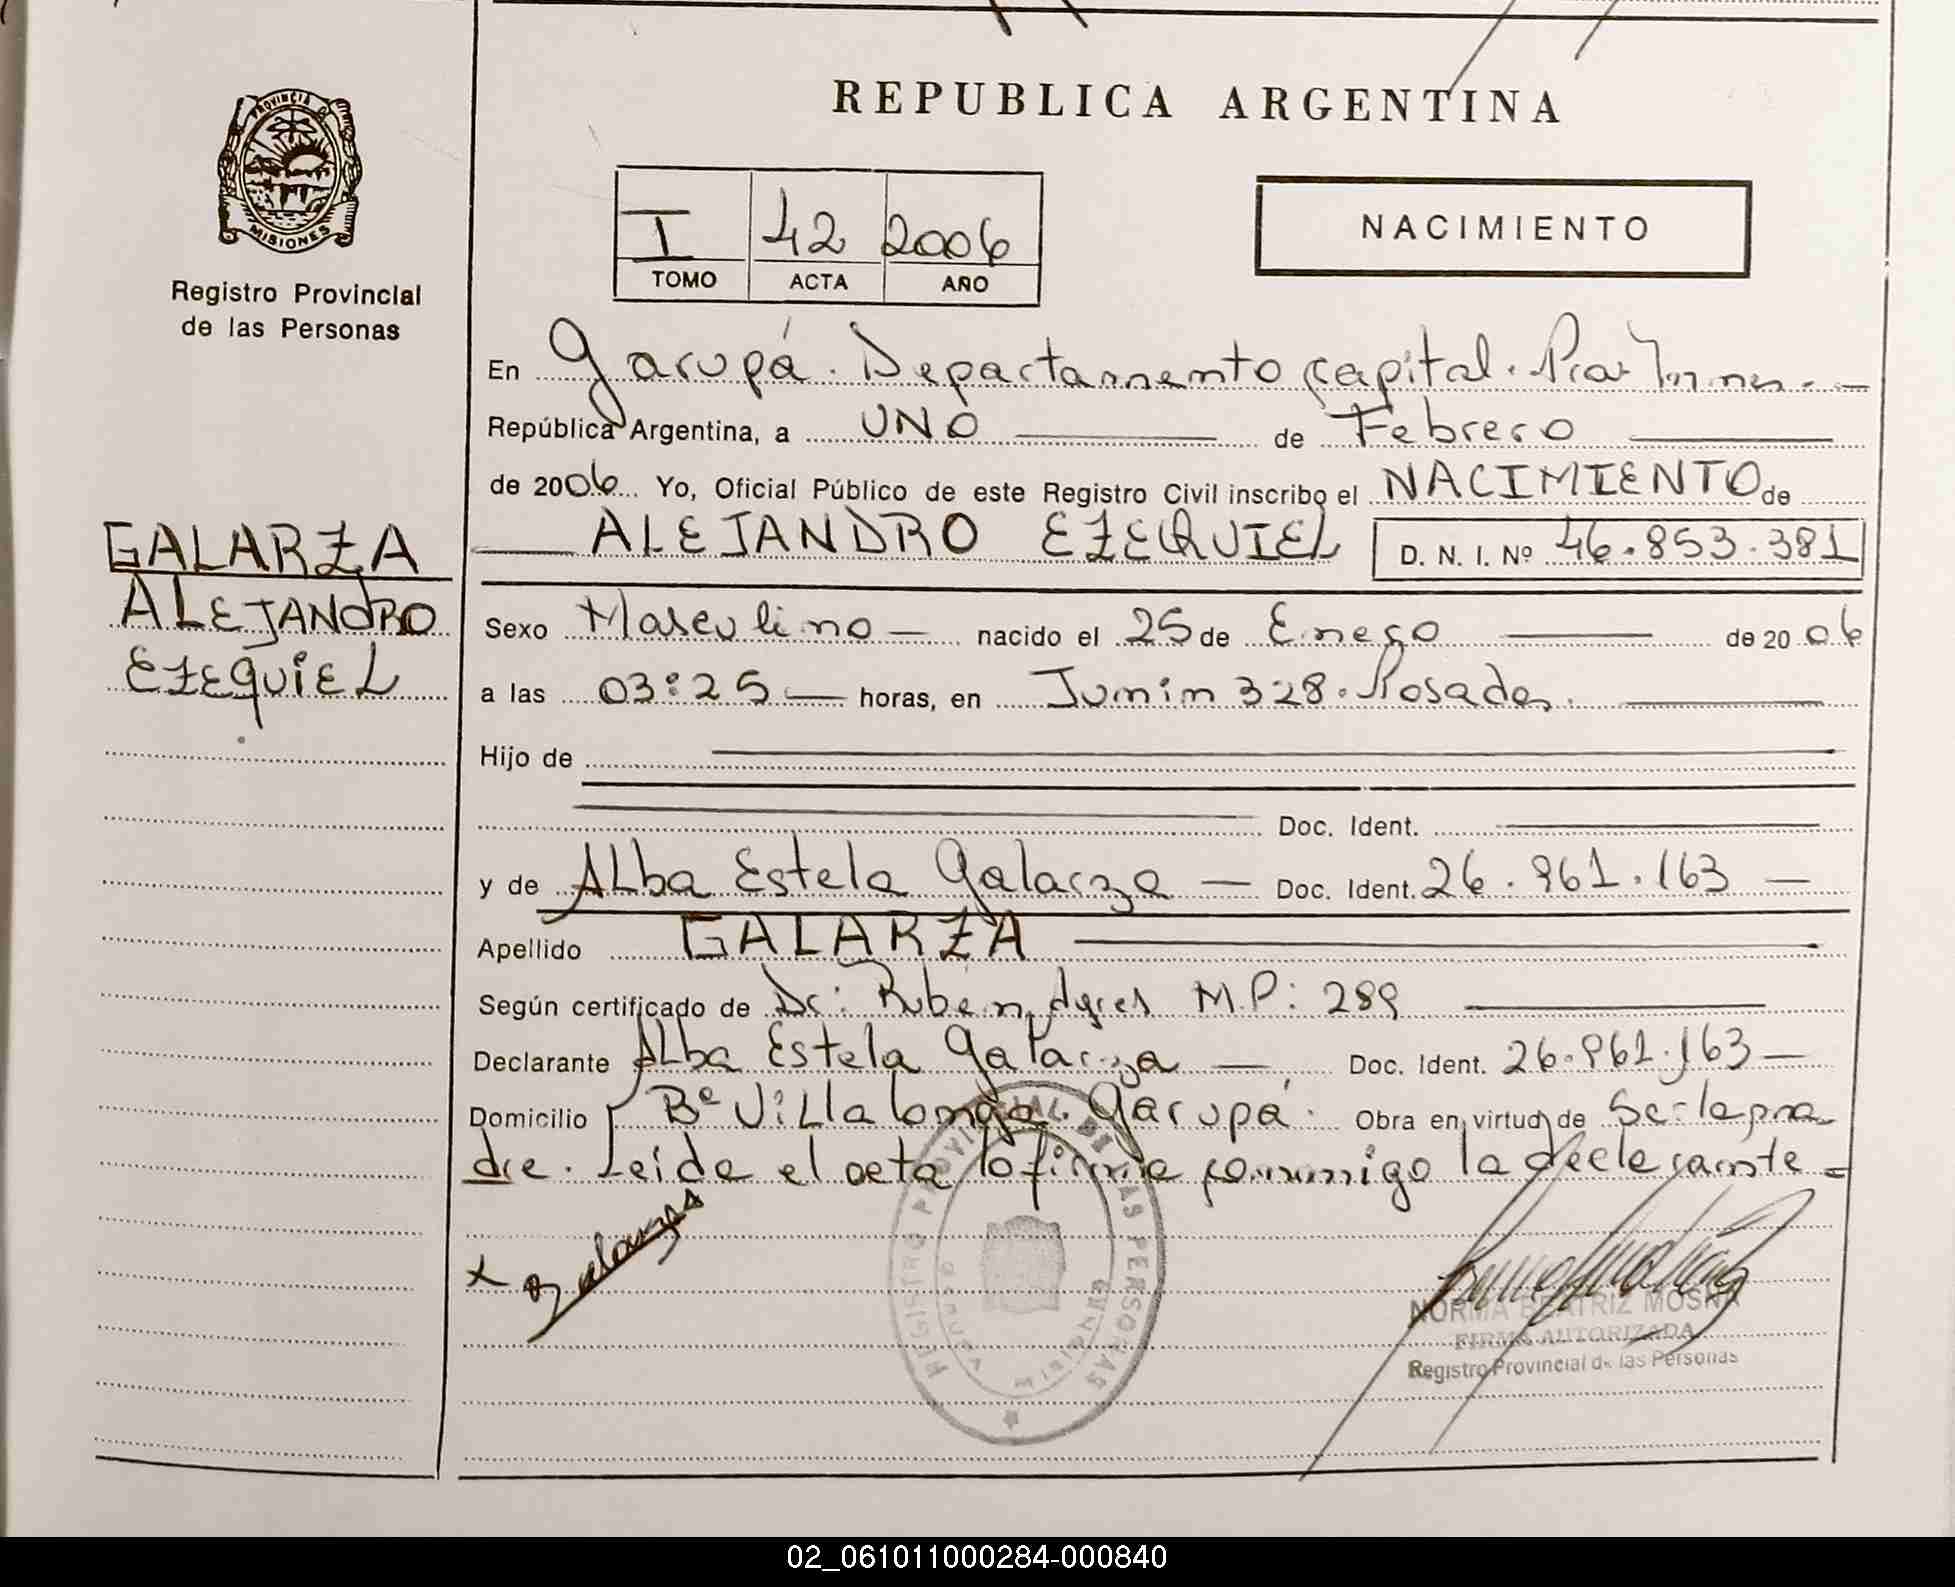 REPUBLICA ARGENTINA
PROVINCIA DE
MISIONES
Registro Provincial
de las Personas
I 42 2006
TOMO ACTA AÑO
NACIMIENTO
En Garupá. Departamento Capital.
República Argentina, a UNO de Febrero
de 2006 Yo, Oficial Público de este Registro Civil inscribo el NACIMIENTO de
ALEJANDRO EZEQUIEL D. N. I. Nº 46.853.381
GALARZA
ALEJANDRO
EZEQUIEL
Sexo Masculino nacido el 25 de Enero de 2006
a las 03:25 horas, en Junin 328. Posadas.
Hijo de
Doc. Ident.
y de ALba Estela Galarza Doc. Ident. 26.961.163
Apellido GALARZA
Según certificado de Dr: Ruben Ayres M.P: 289
Declarante ALba Estela Galarza Doc. Ident. 26.961.163
Domicilio Bº ViLLalonga. Garupá. Obra en virtud de Ser la ma
dre. Leida el acta la firma conmigo la declarante
x Galarza
REGISTRO PROVINCIAL DE LAS PERSONAS
NORMA BEATRIZ MOSNA
FIRMA AUTORIZADA
Registro Provincial de las Personas
02_061011000284-000840